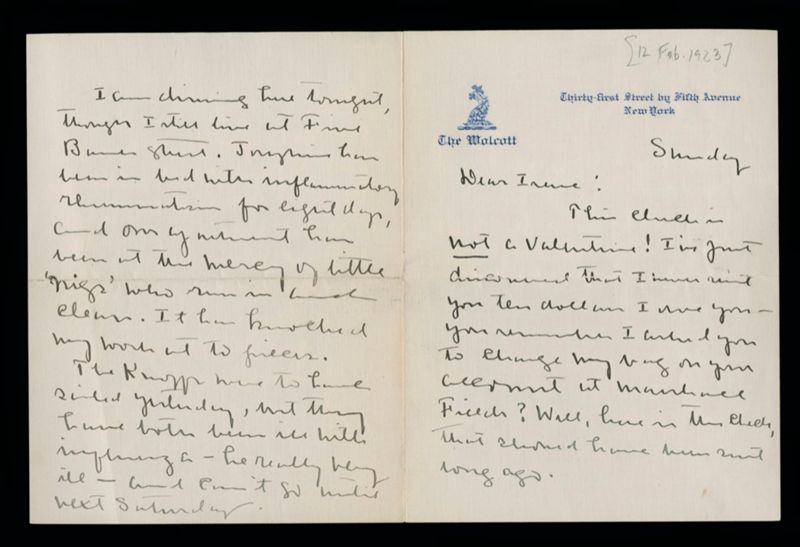 [12 Feb. 1923]
Thirty-first Street by Fifth Avenue
New York
The Wolcott
Sunday
Dear Irene:
This check is
not a Valentine! I've just
discovered that I never sent
you ten dollars I owe you —
you remember I asked you
to charge my bag on your
account at Marshall
Fields? Well, here is the check,
that should have been sent
long ago.
I am dining here tonight,
though I still live at Five
Bank Street. Josephine has
been in bed with inflammatory
rheumatism for eight days,
and our apartment has
been at the mercy of little
'nigs' who run in and
clean. It has knocked
my work all to pieces.
The Knopfs were to have
sailed yesterday, but they
have both been ill with
influenza — he really very
ill — and can't go until
next Saturday.